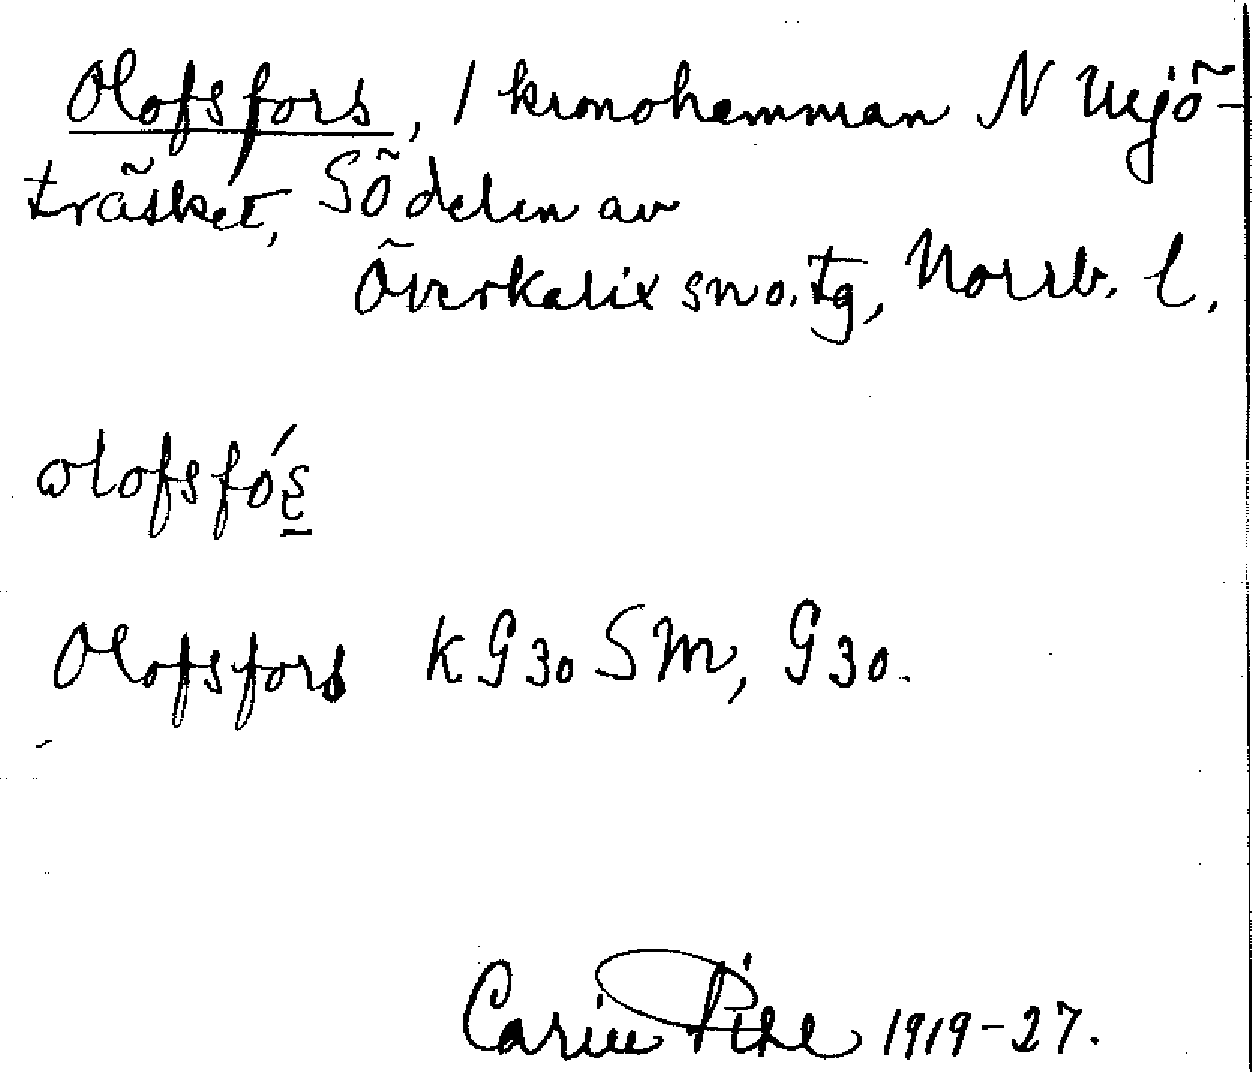 Olofsfors, 1 kronohemman N
träsket, SÖ delen av
Överkalix sn o. tg, Norrb. l.
olofsfo
Olofsfors KG30 SM, G30.
Carin Pihl 1919-27.